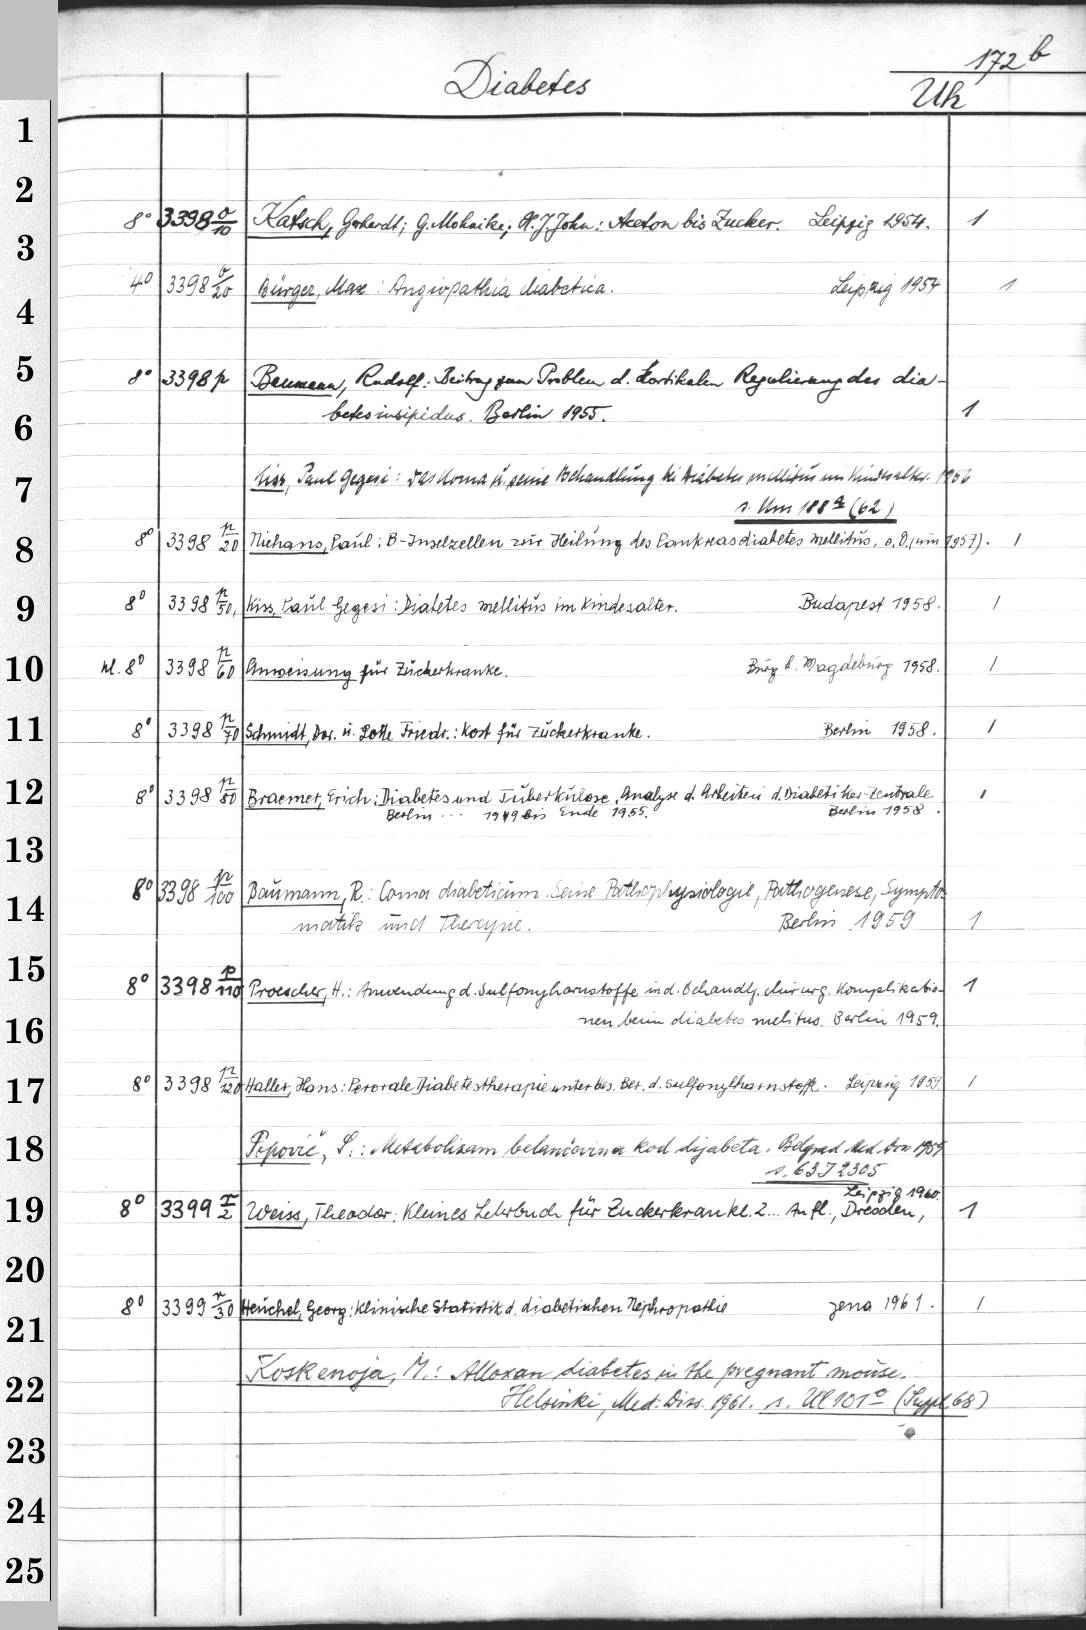 172 b
Diabetes
Uh
1
2
8° 3398 o/10 Katsch, Gerhardt; G. Mohnike; H. J. John: Aceton bis Zucker. Leipzig 1954. 1
3
4° 3398 o/20 Bürger, Max: Angiopathia diabetica. Leipzig 1954 1
4
5
8° 3398 p Baumann, Rudolf: Beitrag zum Problem d. kortikalen Regulierung des dia-
betes insipidus. Berlin 1955. 1
6
Kiss, Paul Gegesi: Das Koma u. seine Behandlung bei Diabetes mellitus im Kindesalter. 1956
7
s. Um 188 a (62)
8
8° 3398 p/20 Niehans, Paul: B-Inselzellen zur Heilung des Pankreasdiabetes mellitus. o.O. (um 1957). 1
9
8° 3398 p/50, Kiss, Paul Gegesi: Diabetes mellitus im Kindesalter. Budapest 1958. 1
10
kl. 8° 3398 p/60 Anweisung für Zuckerkranke. Burg b. Magdeburg 1958. 1
11
8° 3398 p/70 Schmidt, Dor. u. Lotte Friedr.: Kost für Zuckerkranke. Berlin 1958. 1
12
8° 3398 p/80 Braemer, Erich: Diabetes und Tuberkulose. Analyse d. Arbeiten d. Diabetiker-Zentrale
Berlin ... 1949 bis Ende 1955. Berlin 1958. 1
13
8° 3398 p/100 Baumann, R.: Coma diabeticum. Seine Pathophysiologie, Pathogenese, Sympto-
14
matik und Therapie. Berlin 1959 1
15
8° 3398 p/110 Proescher, H.: Anwendung d. Sulfonylharnstoffe in d. Behandlg. chirurg. Komplikatio- 1
16
nen beim diabetes melitus. Berlin 1959.
17
8° 3398 p/120 Haller, Hans: Perorale Diabetestherapie unter bes. Ber. d. Sulfonylharnstoffe. Leipzig 1959. 1
18
Popović, S.: Metabolizam belančevina kod dijabeta. Belgrad Med. Diss 1959
s. 63 J 2305
19
Leipzig 1960.
8° 3399 r/2 Weiss, Theodor: Kleines Lehrbuch für Zuckerkranke. 2... Aufl., Dresden, 1
20
8° 3399 r/30 Heuchel, Georg: Klinische Statistik d. diabetischen Nephropathie Jena 1961. 1
21
Koskenoja, M.: Alloxan diabetes in the pregnant mouse.
22
Helsinki, Med. Diss. 1961. s. Ul 101 o (Suppl. 68)
23
24
25